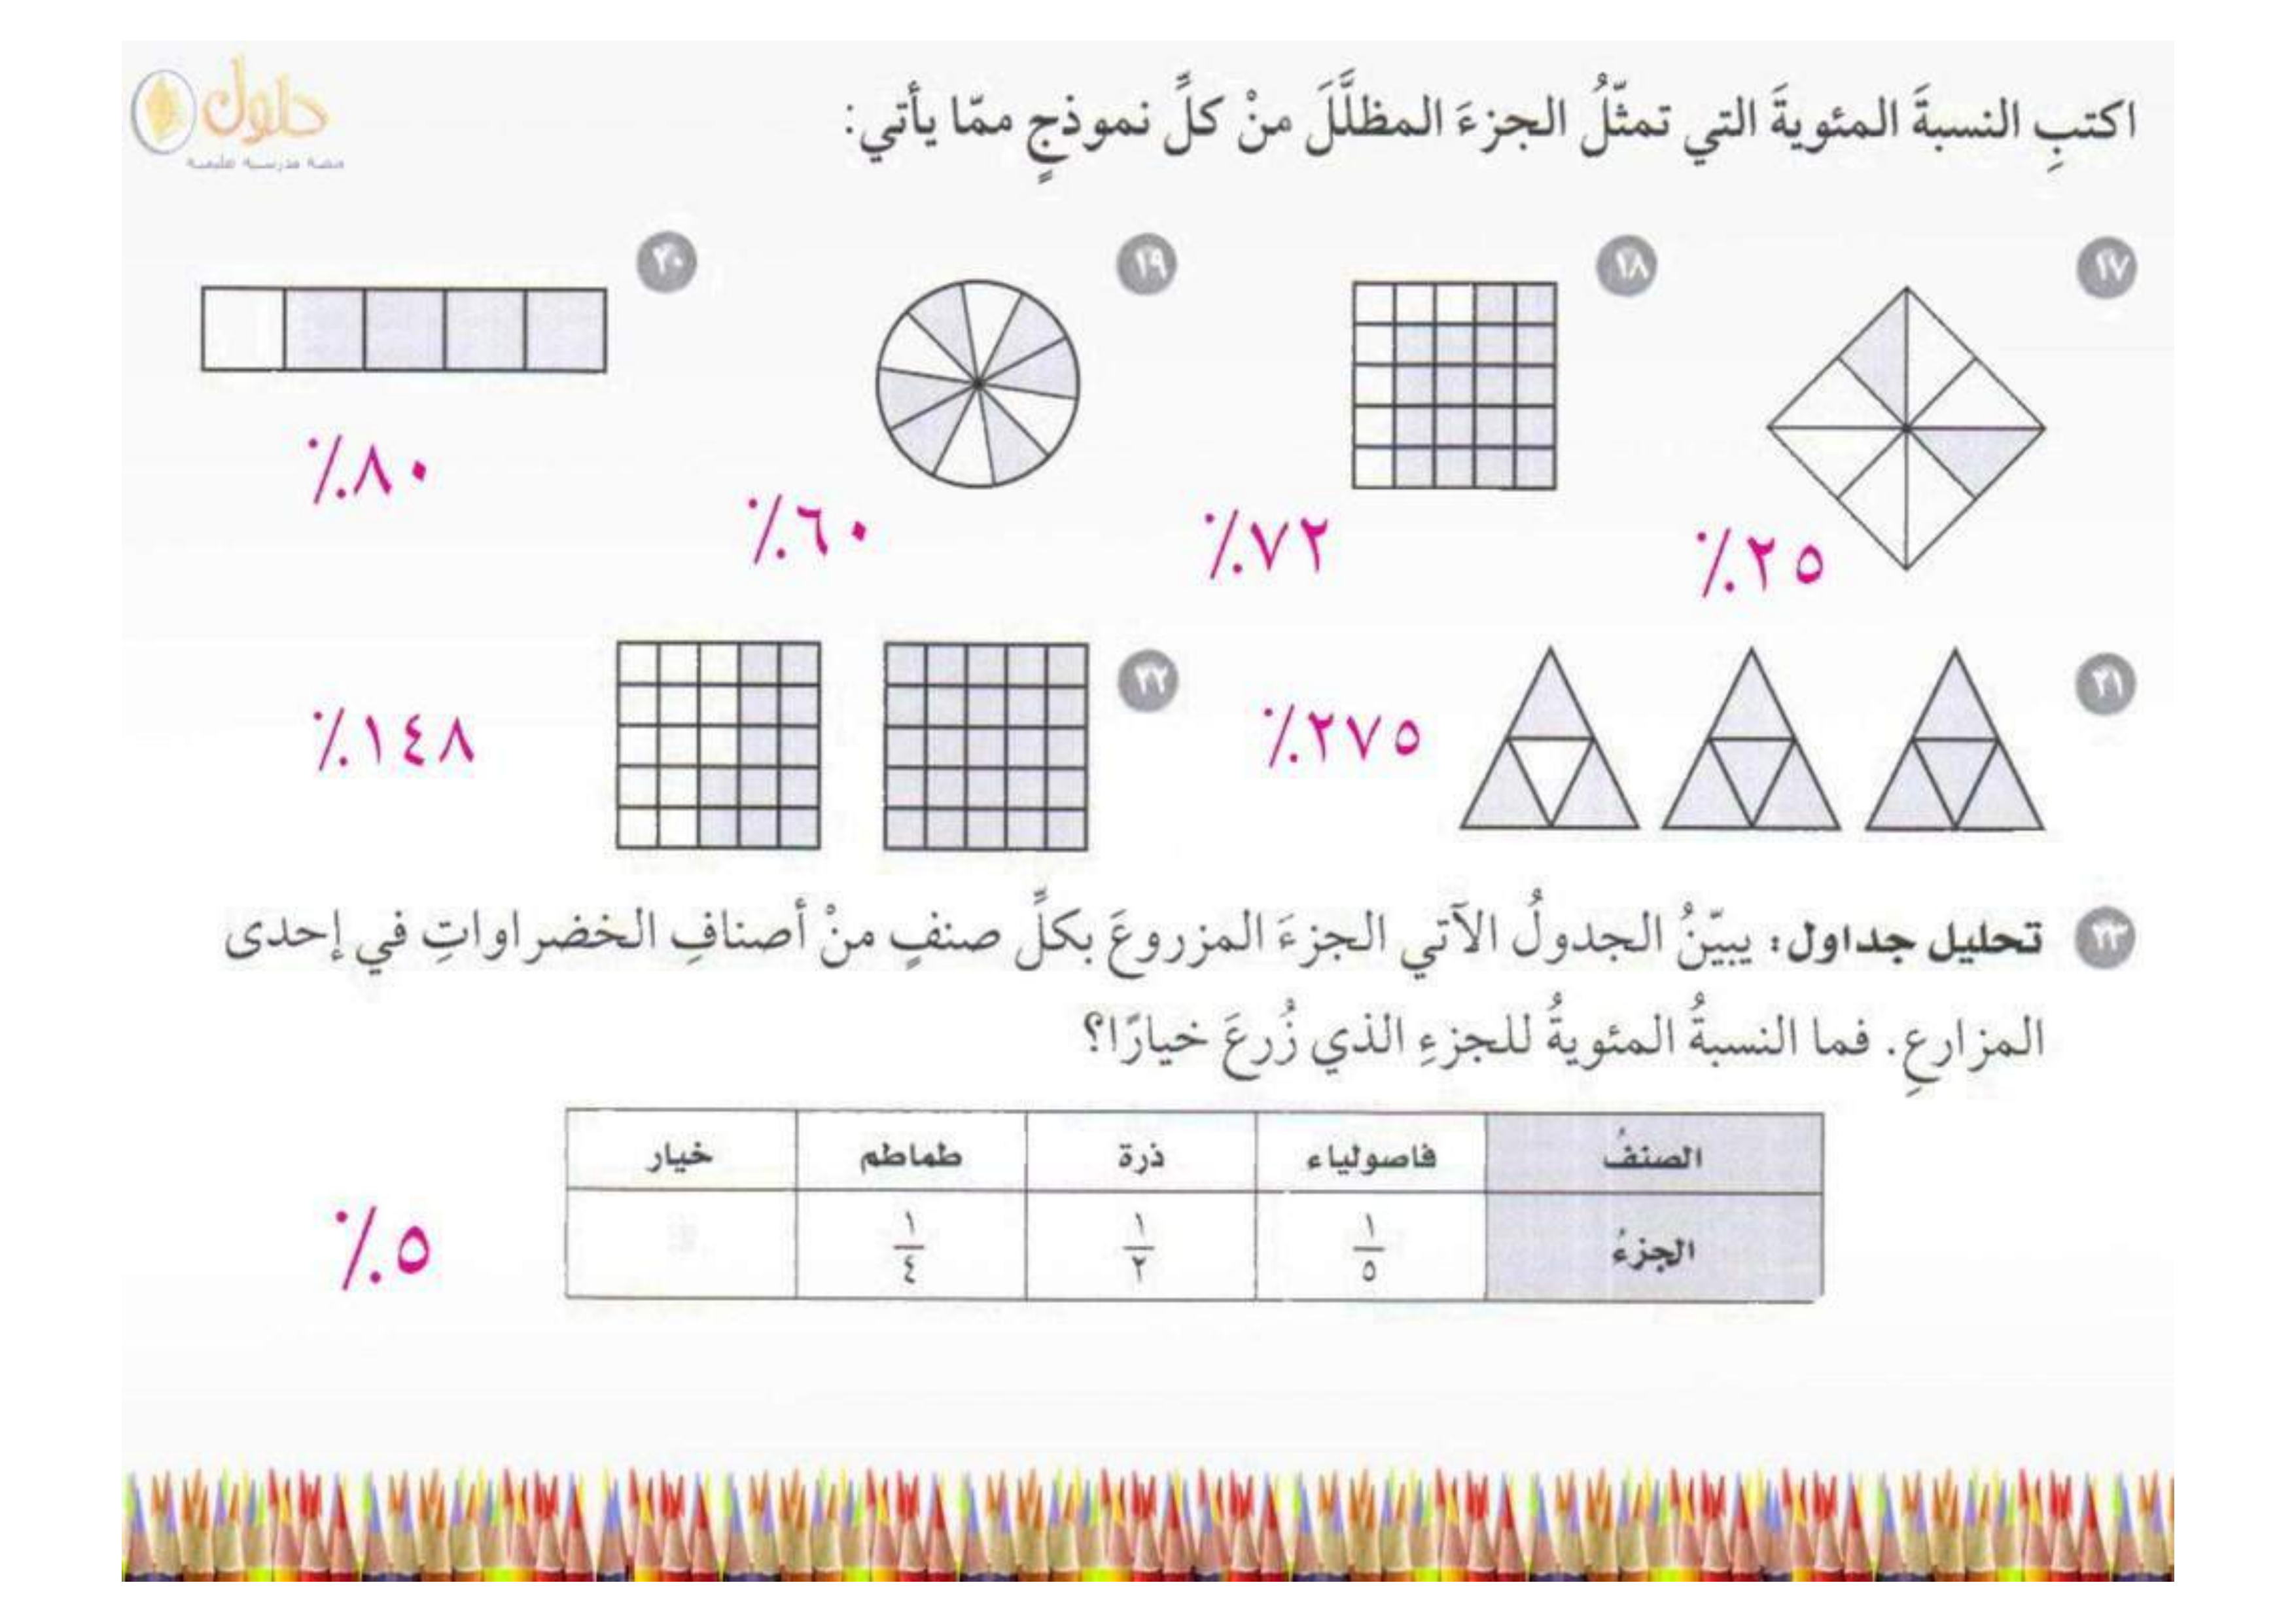 حلول
اكتبِ النسبةَ المئويةَ التي تمثّلُ الجزءَ المظلَّلَ منْ كلِّ نموذجٍ ممّا يأتي:
١٧
١٨
١٩
٢٠
٪٢٥
٪٧٢
٪٦٠
٪٨٠
٢١
٪٢٧٥
٢٢
٪١٤٨
٢٣ تحليل جداول: يبيّنُ الجدولُ الآتي الجزءَ المزروعَ بكلِّ صنفٍ منْ أصنافِ الخضراواتِ في إحدى
المزارعِ. فما النسبةُ المئويةُ للجزءِ الذي زُرعَ خيارًا؟
الصنفُ فاصولياء ذرة طماطم خيار
الجزءُ ١/٥ ١/٢ ١/٤
٪٥